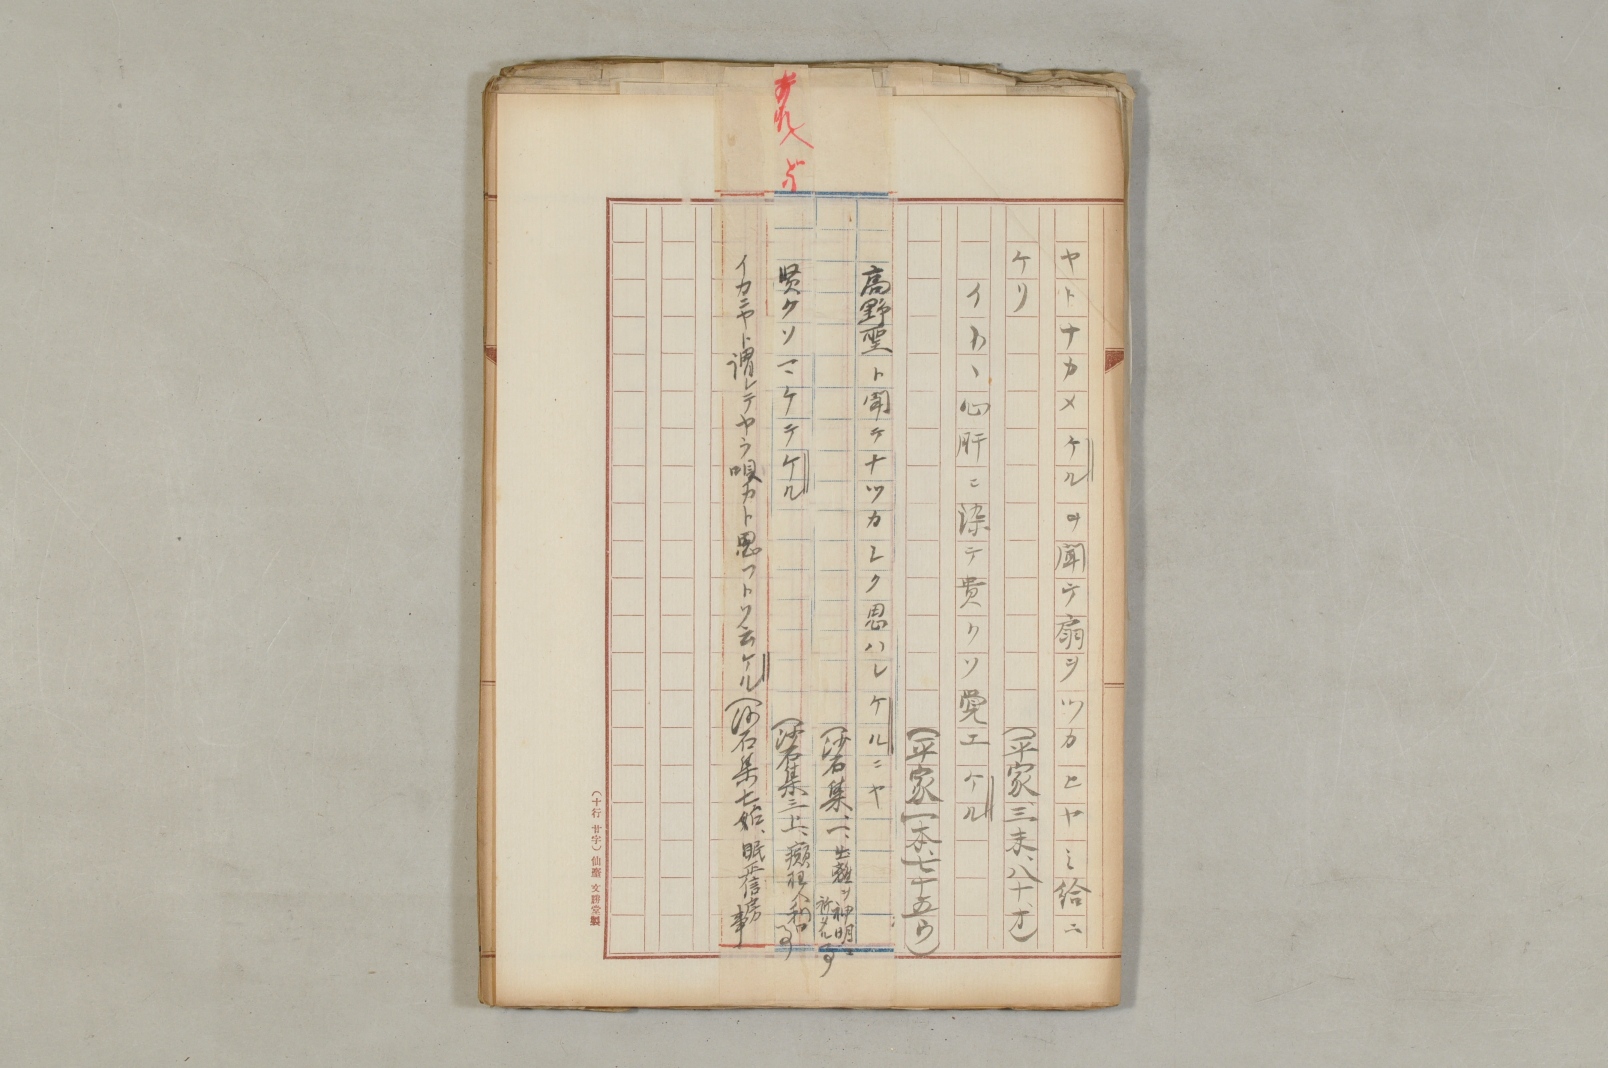 ヤトナカメケルヲ聞テ扇ヲツカヒヤミ給ニ
ケリ
(平家三末、八十、オ)
イカヽ心肝ニ染テ貴クソ覚エケル
(平家一本、七十五ウ)
高野聖ト聞テナツカシク思ハレケルニヤ
(沙石集、一、出離ヲ神明ニ祈ル事
賢クソマケテケル
(沙石集三上、癲狂人利口事
イカニヤト謂レテヤラ唄カト思フトソ云ケル(沙石集七始、眠正信房事
(十行 廿字)仙台 文勝堂製